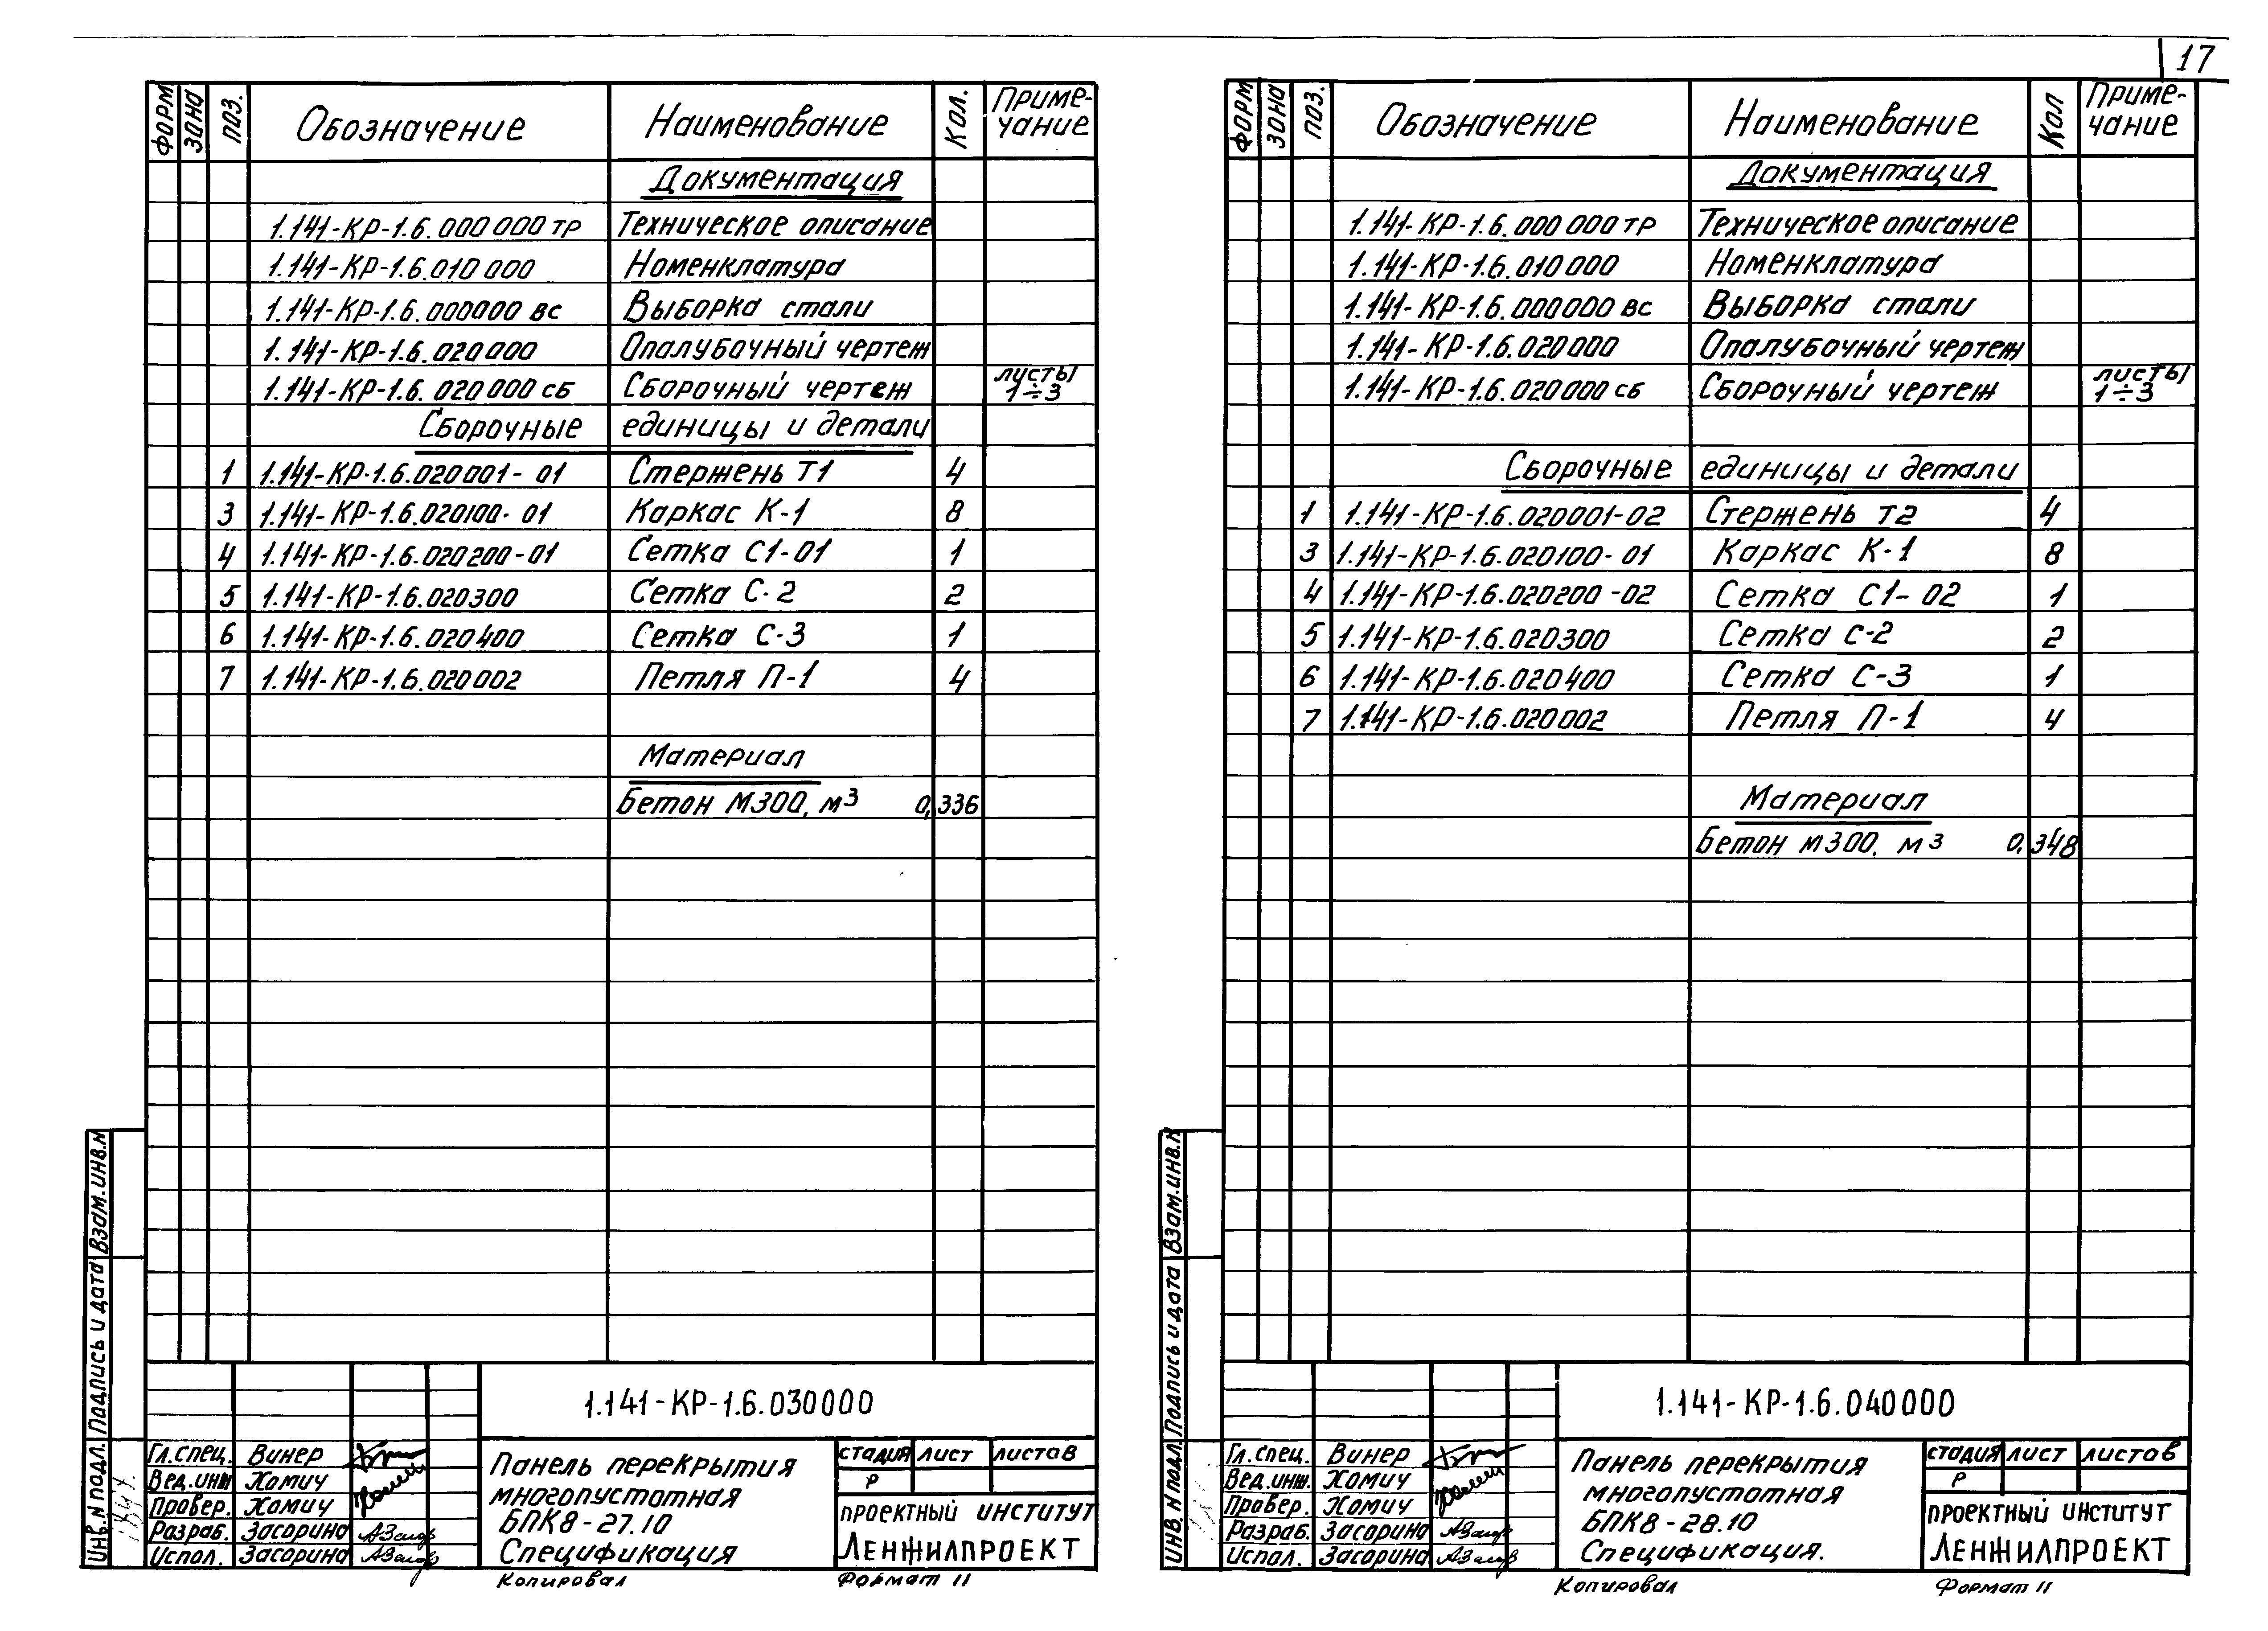 17
ФОРМ ЗОНА ПОЗ. Обозначение Наименование Кол. Примечание
Документация
1.141-КР-1.6.000 000 ТР Техническое описание
1.141-КР-1.6.010 000 Номенклатура
1.141-КР-1.6.000000 ВС Выборка стали
1.141-КР-1.6.020000 Опалубочный чертеж
1.141-КР-1.6.020000 СБ Сборочный чертеж листы 1÷3
Сборочные единицы и детали
1 1.141-КР-1.6.020001-01 Стержень Т1 4
3 1.141-КР-1.6.020100-01 Каркас К-1 8
4 1.141-КР-1.6.020200-01 Сетка С1-01 1
5 1.141-КР-1.6.020300 Сетка С-2 2
6 1.141-КР-1.6.020400 Сетка С-3 1
7 1.141-КР-1.6.020002 Петля П-1 4
Материал
Бетон М300, м3 0,336
Взам.инв.N
Подпись и дата
Инв.N подл.
1.141-КР-1.6.030000
Гл.спец. Винер
Вед.инж Хомич
Провер. Хомич
Разраб. Засорина
Испол. Засорина
Панель перекрытия
многопустотная
БПК8-27.10
Спецификация
стадия лист листов
Р
ПРОЕКТНЫЙ ИНСТИТУТ
ЛЕНЖИЛПРОЕКТ
Копировал Формат 11
ФОРМ ЗОНА ПОЗ. Обозначение Наименование Кол Примечание
Документация
1.141-КР-1.6.000 000 ТР Техническое описание
1.141-КР-1.6.010 000 Номенклатура
1.141-КР-1.6.000000 ВС Выборка стали
1.141-КР-1.6.020000 Опалубочный чертеж
1.141-КР-1.6.020000 СБ Сборочный чертеж листы 1÷3
Сборочные единицы и детали
1 1.141-КР-1.6.020001-02 Стержень Т2 4
3 1.141-КР-1.6.020100-01 Каркас К-1 8
4 1.141-КР-1.6.020200-02 Сетка С1-02 1
5 1.141-КР-1.6.020300 Сетка С-2 2
6 1.141-КР-1.6.020400 Сетка С-3 1
7 1.141-КР-1.6.020002 Петля П-1 4
Материал
Бетон М300, м3 0,348
Взам.инв.N
Подпись и дата
Инв.N подл.
1.141-КР-1.6.040000
Гл.спец. Винер
Вед.инж. Хомич
Провер. Хомич
Разраб. Засорина
Испол. Засорина
Панель перекрытия
многопустотная
БПК8-28.10
Спецификация.
стадия лист листов
Р
ПРОЕКТНЫЙ ИНСТИТУТ
ЛЕНЖИЛПРОЕКТ
Копировал Формат 11